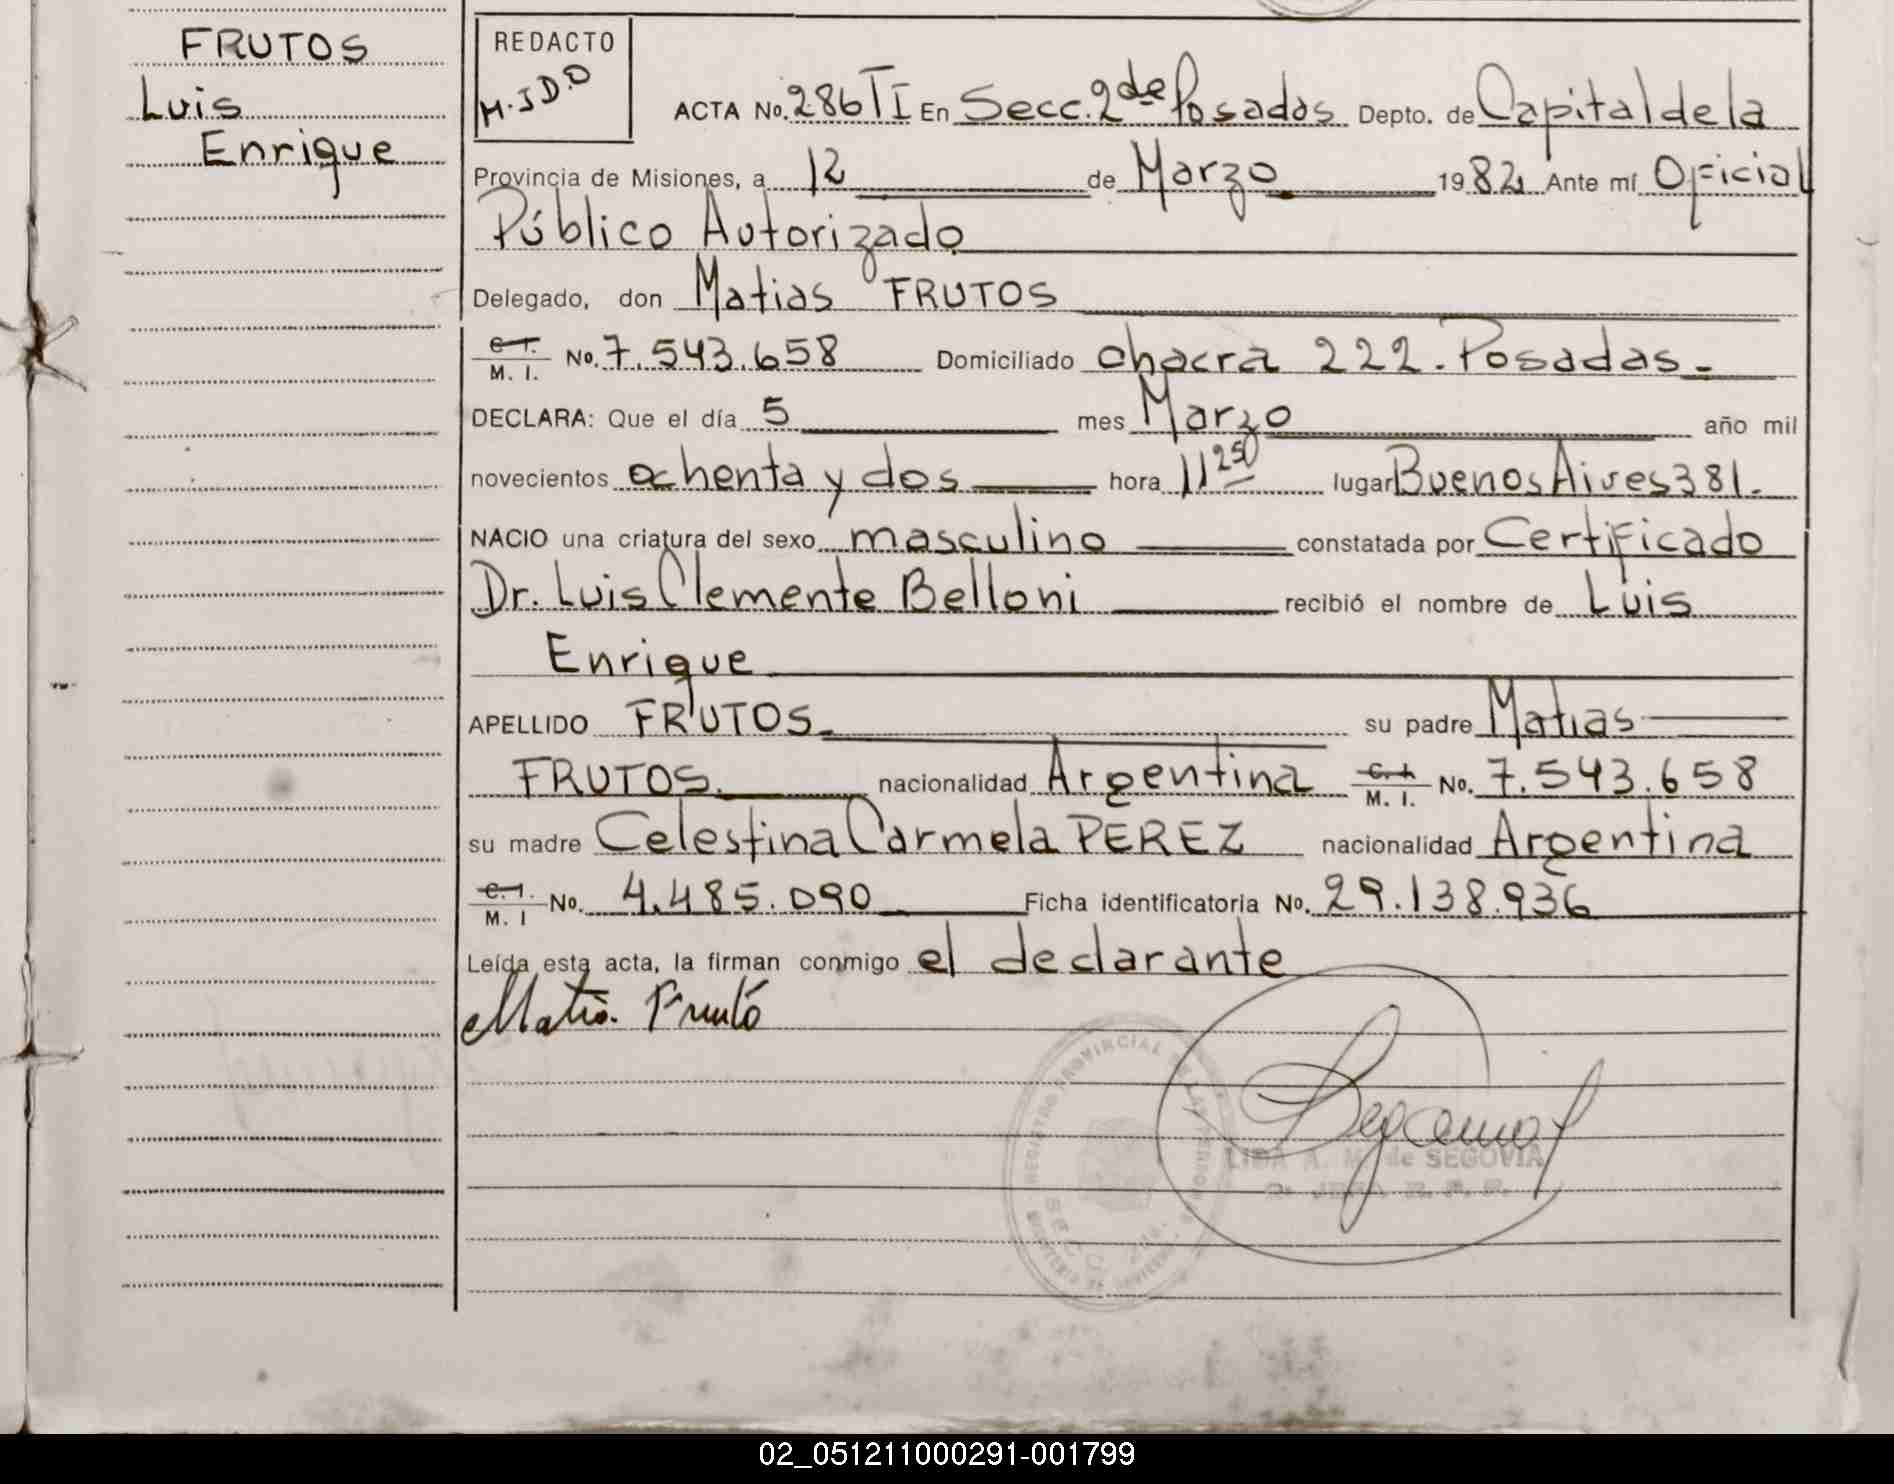 FRUTOS
Luis
Enrique
REDACTO
M.J D.O
ACTA No. 286 TI En Secc. 2da de Posadas Depto. de Capital de la
Provincia de Misiones, a 12 de Marzo 1982 Ante mí Oficial
Público Autorizado
Delegado, don Matias FRUTOS
C. I. / M. I. No. 7.543.658 Domiciliado chacra 222. Posadas.-
DECLARA: Que el día 5 mes Marzo año mil
novecientos ochenta y dos hora 11 25 lugar Buenos Aires 381.
NACIO una criatura del sexo masculino constatada por Certificado
Dr. Luis Clemente Belloni recibió el nombre de Luis
Enrique
APELLIDO FRUTOS. su padre Matias
FRUTOS. nacionalidad Argentina C. I. / M. I. No. 7.543.658
su madre Celestina Carmela PEREZ nacionalidad Argentina
C. I. / M. I No. 4.485.090 Ficha identificatoria No. 29.138.936
Leída esta acta, la firman conmigo el declarante
Matias Frutos
REGISTRO PROVINCIAL DE LAS PERSONAS
SECC. 2da.
MINISTERIO DE GOBIERNO
LIDA A. M. de SEGOVIA
02_051211000291-001799